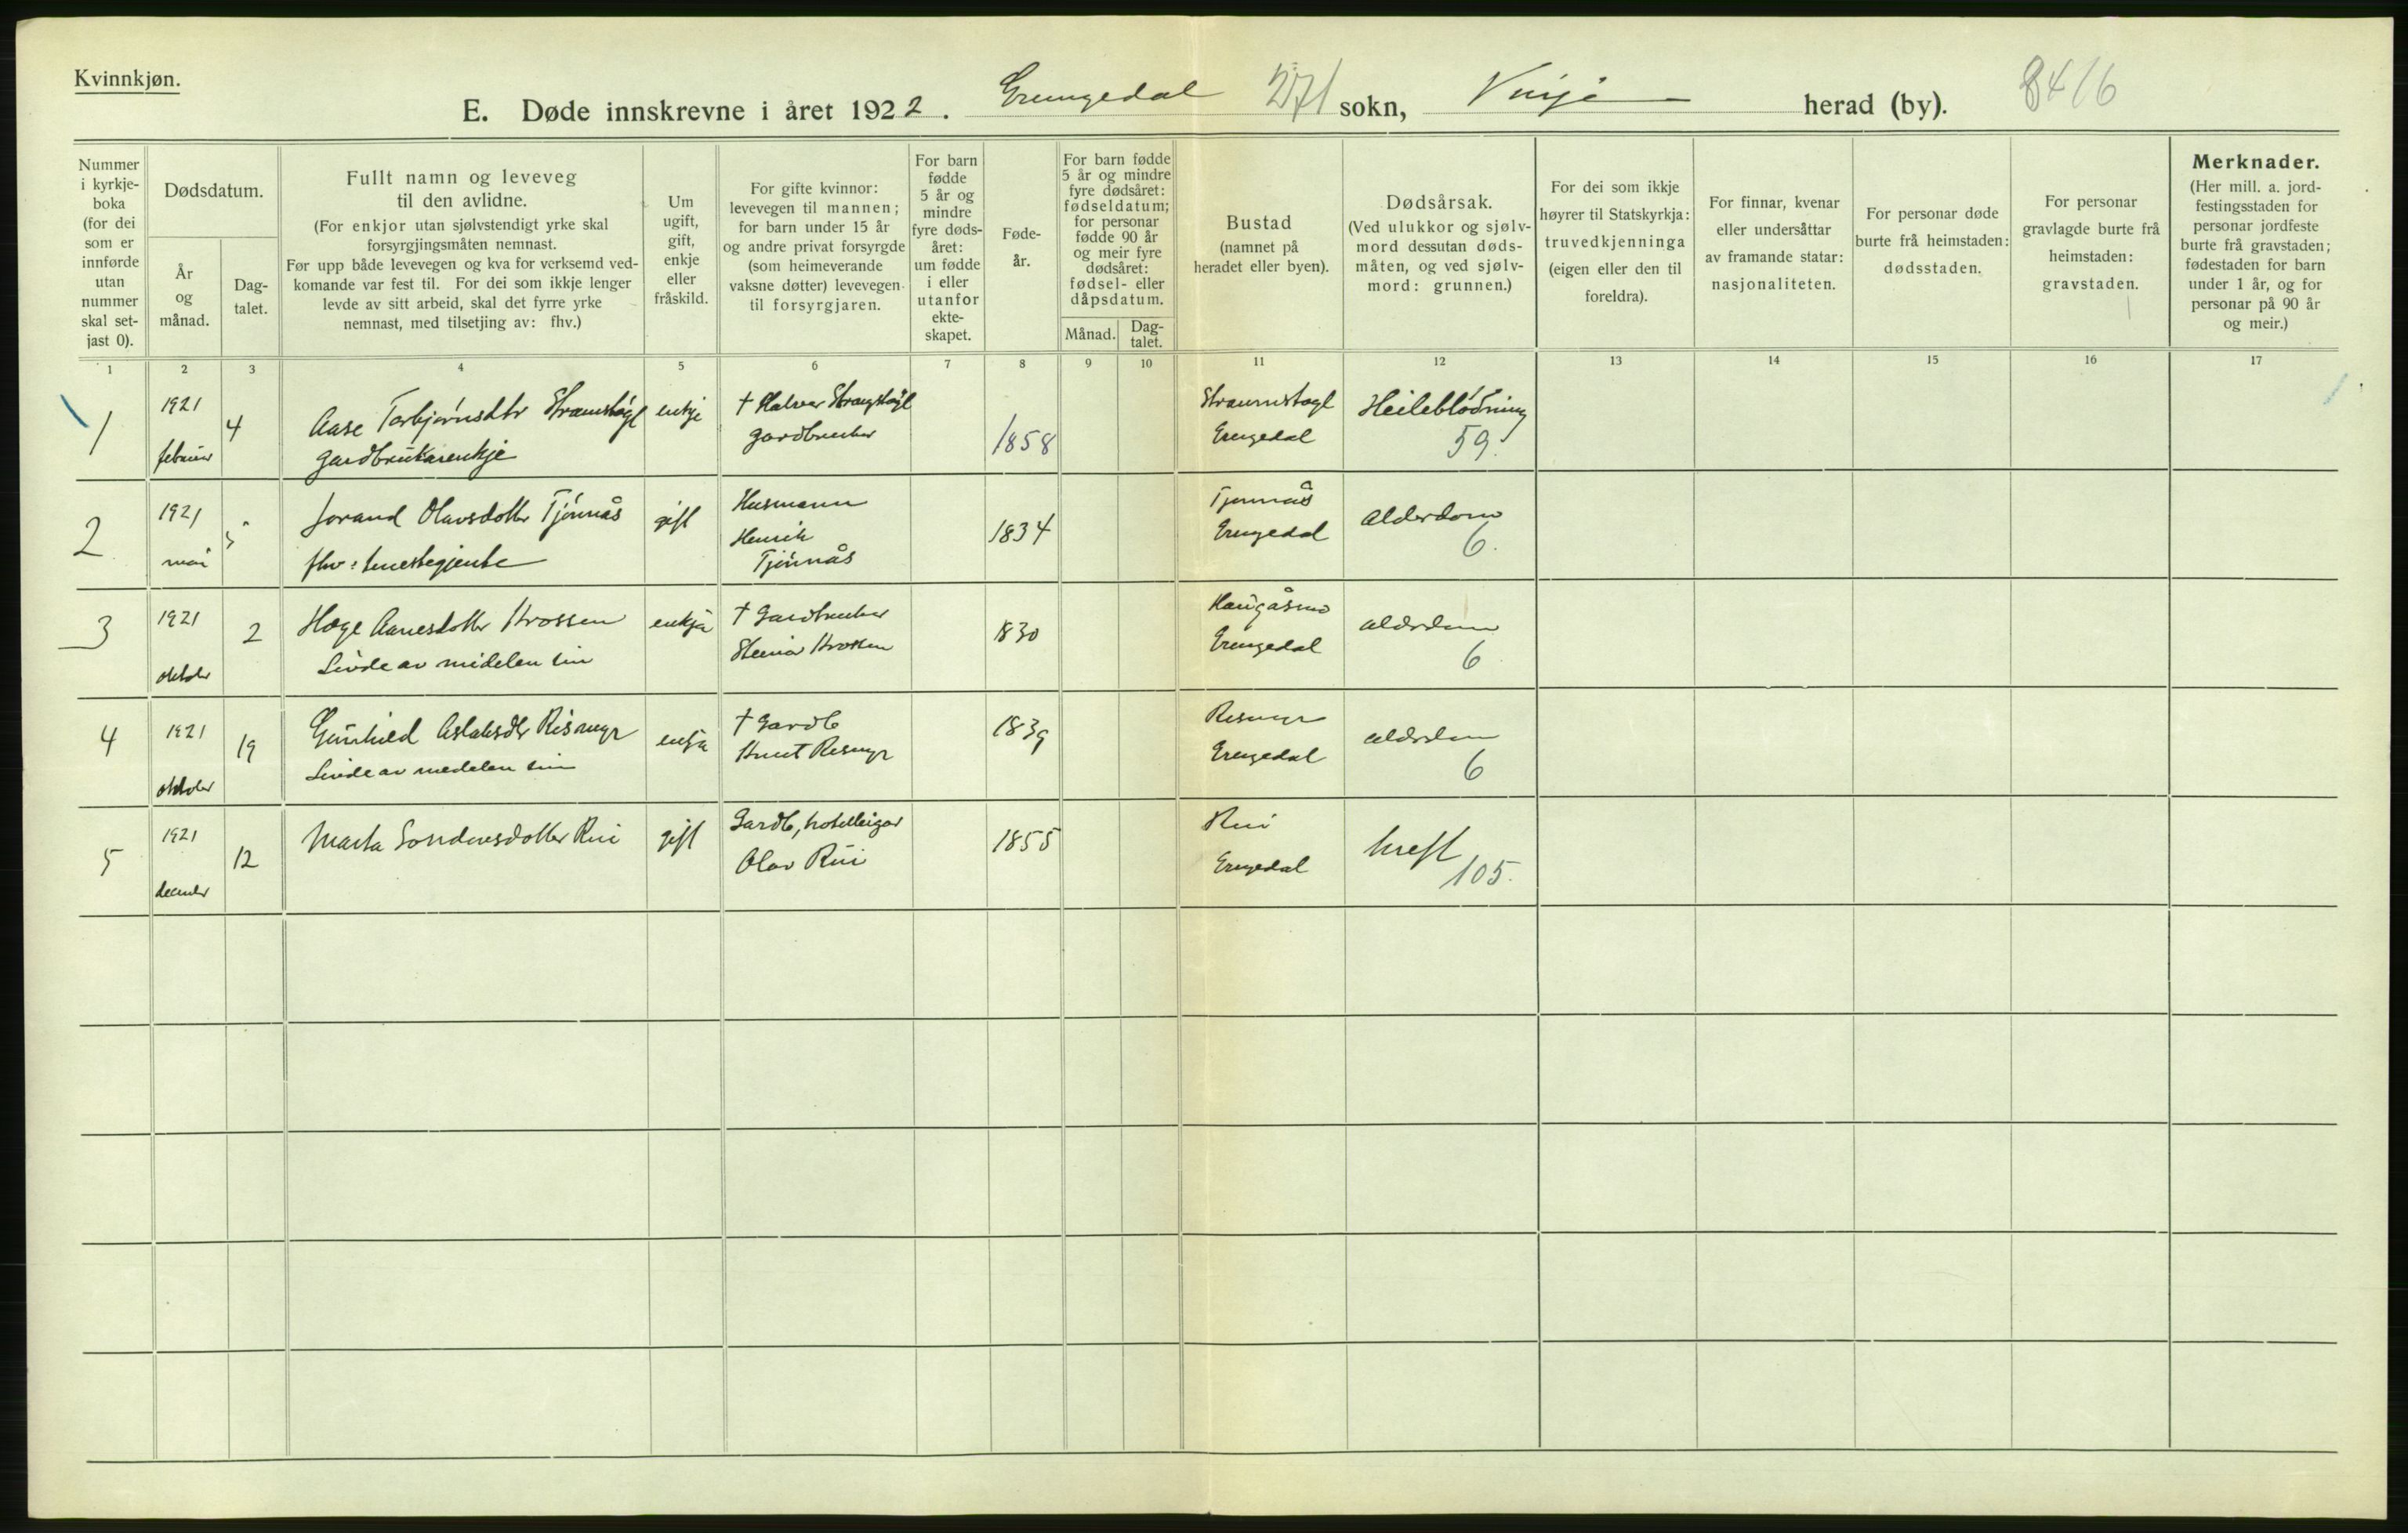 Kvinnkjøn.
E. Døde innskrevne i året 1922. Grungedal 271 sokn, Vinje herad (by). 8416
Nummer i kyrkje-boka (for dei som er innførde utan nummer skal set-jast 0).
Dødsdatum.
År og månad.
Dag-talet.
Fullt namn og leveveg til den avlidne.
(For enkjor utan sjølvstendigt yrke skal forsyrgjingsmåten nemnast.
Før upp både levevegen og kva for verksemd ved-komande var fest til. For dei som ikkje lenger levde av sitt arbeid, skal det fyrre yrke nemnast, med tilsetjing av: fhv.)
Um ugift, gift, enkje eller fråskild.
For gifte kvinnor: levevegen til mannen; for barn under 15 år og andre privat forsyrgde (som heimeverande vaksne døtter) levevegen til forsyrgjaren.
For barn fødde 5 år og mindre fyre døds-året: um fødde i eller utanfor ekte-skapet.
Føde-år.
For barn fødde 5 år og mindre fyre dødsåret: fødseldatum; for personar fødde 90 år og meir fyre dødsåret: fødsel- eller dåpsdatum.
Månad.
Dag-talet.
Bustad (namnet på heradet eller byen).
Dødsårsak.
(Ved ulukkor og sjølv-mord dessutan døds-måten, og ved sjølv-mord: grunnen.)
For dei som ikkje høyrer til Statskyrkja: truvedkjenninga (eigen eller den til foreldra).
For finnar, kvenar eller undersåttar av framande statar: nasjonaliteten.
For personar døde burte frå heimstaden: dødsstaden.
For personar gravlagde burte frå heimstaden: gravstaden.
Merknader.
(Her mill. a. jord-festingsstaden for personar jordfeste burte frå gravstaden; fødestaden for barn under 1 år, og for personar på 90 år og meir.)
1 2 3 4 5 6 7 8 9 10 11 12 13 14 15 16 17
1 1921 februar 4 Aase Torbjørnsdtr Straumstøgl enkje 1858 Straumstøgl Grungedal Heileblødning 59.
gardbrukarenkje gardbruker
2 1921 mai Jorand Olavsdotter Tjønnås gift Husmann Henrik Tjønnås 1834 Tjønnås Grungedal Alderdom 6.
fhv: tenestegjente
3 1921 oktober 2 Hæge Aanesdotter Krossen enkja † Gardbruker Krossen 1830 Haugåsmo Grungedal alderdom 6
Livde av midelen sin
4 1921 oktober 19 Gunhild Aslaksdtr Rismyr enkja † Gardb Knut Rismyr 1839 Rismyr Grungedal alderdom 6
Livde av medelen sin
5 1921 december 12 Marta Sondresdotter Rui gift Gardb, hotelleigar Olav Rui 1855 Rui Grungedal kreft 105.